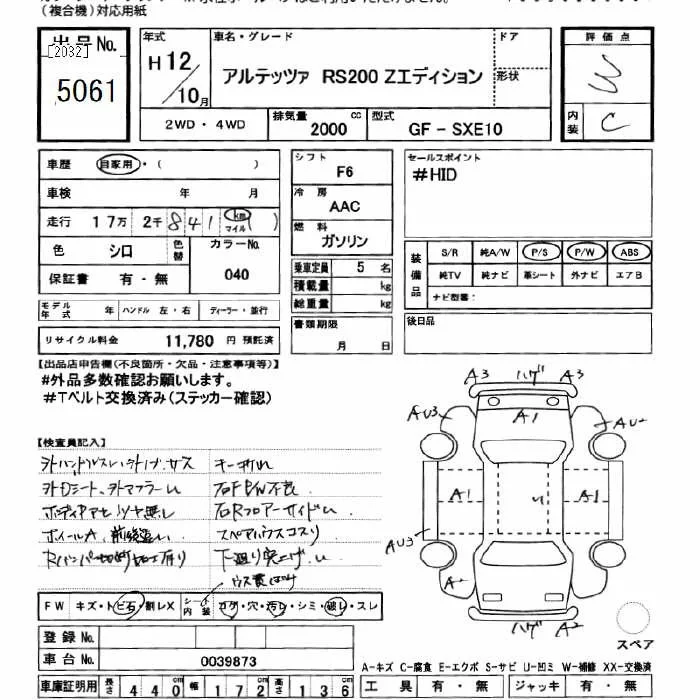 (複合機)対応用紙
出品No.
[2032]
5061
年式 車名・グレード ドア
H12/10月 アルテッツァ RS200 Zエディション 形状
2WD・4WD 排気量 2000 cc 型式 GF－SXE10
評価点
内装 C
車歴 自家用・( )
車検 年 月
走行 17万 2千 841 km マイル
色 シロ 色替 カラーNo. 040
保証書 有・無
モデル年式 年 ハンドル 左・右 ディーラー・並行
リサイクル料金 11,780 円 預託済
シフト F6
冷房 AAC
燃料 ガソリン
乗車定員 5 名
積載量 kg
総重量 kg
書類期限 月 日
セールスポイント
#HID
装備品 S/R 純A/W P/S P/W ABS
純TV 純ナビ 革シート 外ナビ エアB
ナビ型番:
後日品
【出品店申告欄(不良箇所・欠品・注意事項等)】
#外品多数確認お願いします。
#Tベルト交換済み(ステッカー確認)
【検査員記入】
外ハンドル キーキズ
外Dシート、外マフラーU 右F P/W不良
右RフロアーサイドU
ホイールA、前後違い スペアハウスコスリ
下廻り突上げ、U
A3 ハゲ A3
AU3 A1 AU2
A1 U A1
AU3
A2
ハゲ A2
スペア
FW キズ・トビ石・割レX シート内装 コゲ・穴・汚レ・シミ・破レ・スレ
登録No.
車台No. 0039873
車庫証明用 長さ 440 cm 幅 172 cm 高さ 136 cm
A－キズ C－腐食 E－エクボ S－サビ U－凹ミ W－補修 XX－交換済
工具 有・無 ジャッキ 有・無